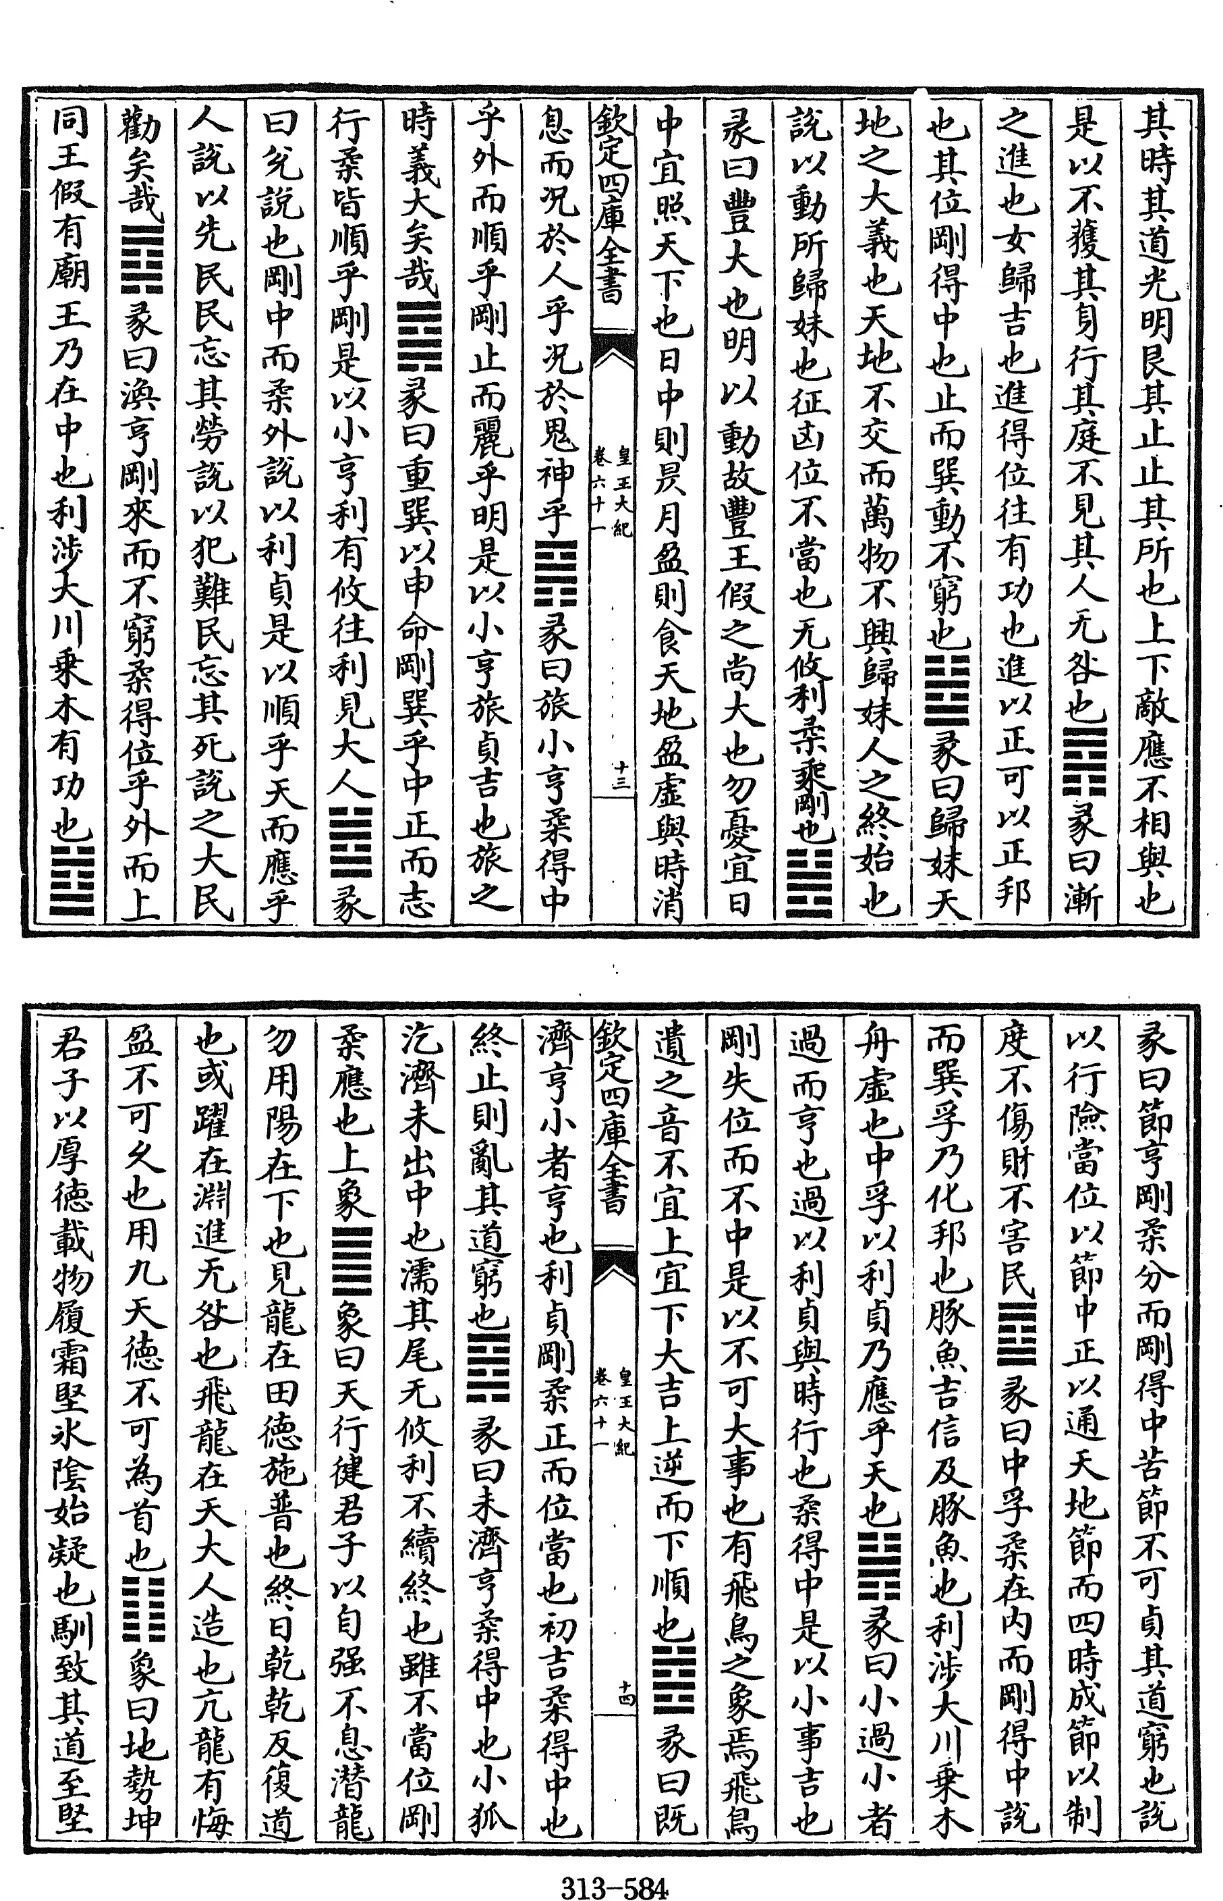 其時其道光明艮其止止其所也上下敵應不相與也
是以不獲其身行其庭不見其人无咎也䷴彖曰漸
之進也女歸吉也進得位往有功也進以正可以正邦
也其位剛得中也止而巽動不窮也䷵彖曰歸妹天
地之大義也天地不交而萬物不興歸妹人之終始也
說以動所歸妹也征凶位不當也无攸利柔乘剛也䷶
彖曰豐大也明以動故豐王假之尚大也勿憂宜日
中宜照天下也日中則昃月盈則食天地盈虛與時消
欽定四庫全書
皇王大紀
卷六十一
十三
息而况於人乎况於鬼神乎䷷彖曰旅小亨柔得中
乎外而順乎剛止而麗乎明是以小亨旅貞吉也旅之
時義大矣哉䷸彖曰重巽以申命剛巽乎中正而志
行柔皆順乎剛是以小亨利有攸往利見大人䷹彖
曰兊說也剛中而柔外說以利貞是以順乎天而應乎
人說以先民民忘其勞說以犯難民忘其死說之大民
勸矣哉䷺彖曰渙亨剛來而不窮柔得位乎外而上
同王假有廟王乃在中也利涉大川乗木有功也䷻
彖曰節亨剛柔分而剛得中苦節不可貞其道窮也說
以行險當位以節中正以通天地節而四時成節以制
度不傷財不害民䷼彖曰中孚柔在内而剛得中說
而巽孚乃化邦也豚魚吉信及豚魚也利涉大川乗木
舟虛也中孚以利貞乃應乎天也䷽彖曰小過小者
過而亨也過以利貞與時行也柔得中是以小事吉也
剛失位而不中是以不可大事也有飛鳥之象焉飛鳥
遺之音不宜上宜下大吉上逆而下順也䷾彖曰既
欽定四庫全書
皇王大紀
卷六十一
十四
濟亨小者亨也利貞剛柔正而位當也初吉柔得中也
終止則亂其道窮也䷿彖曰未濟亨柔得中也小狐
汔濟未出中也濡其尾无攸利不續終也雖不當位剛
柔應也上象䷀象曰天行健君子以自强不息潛龍
勿用陽在下也見龍在田德施普也終日乾乾反復道
也或躍在淵進无咎也飛龍在天大人造也亢龍有悔
盈不可乆也用九天德不可為首也䷁象曰地勢坤
君子以厚德載物履霜堅氷陰始凝也馴致其道至堅
313-584